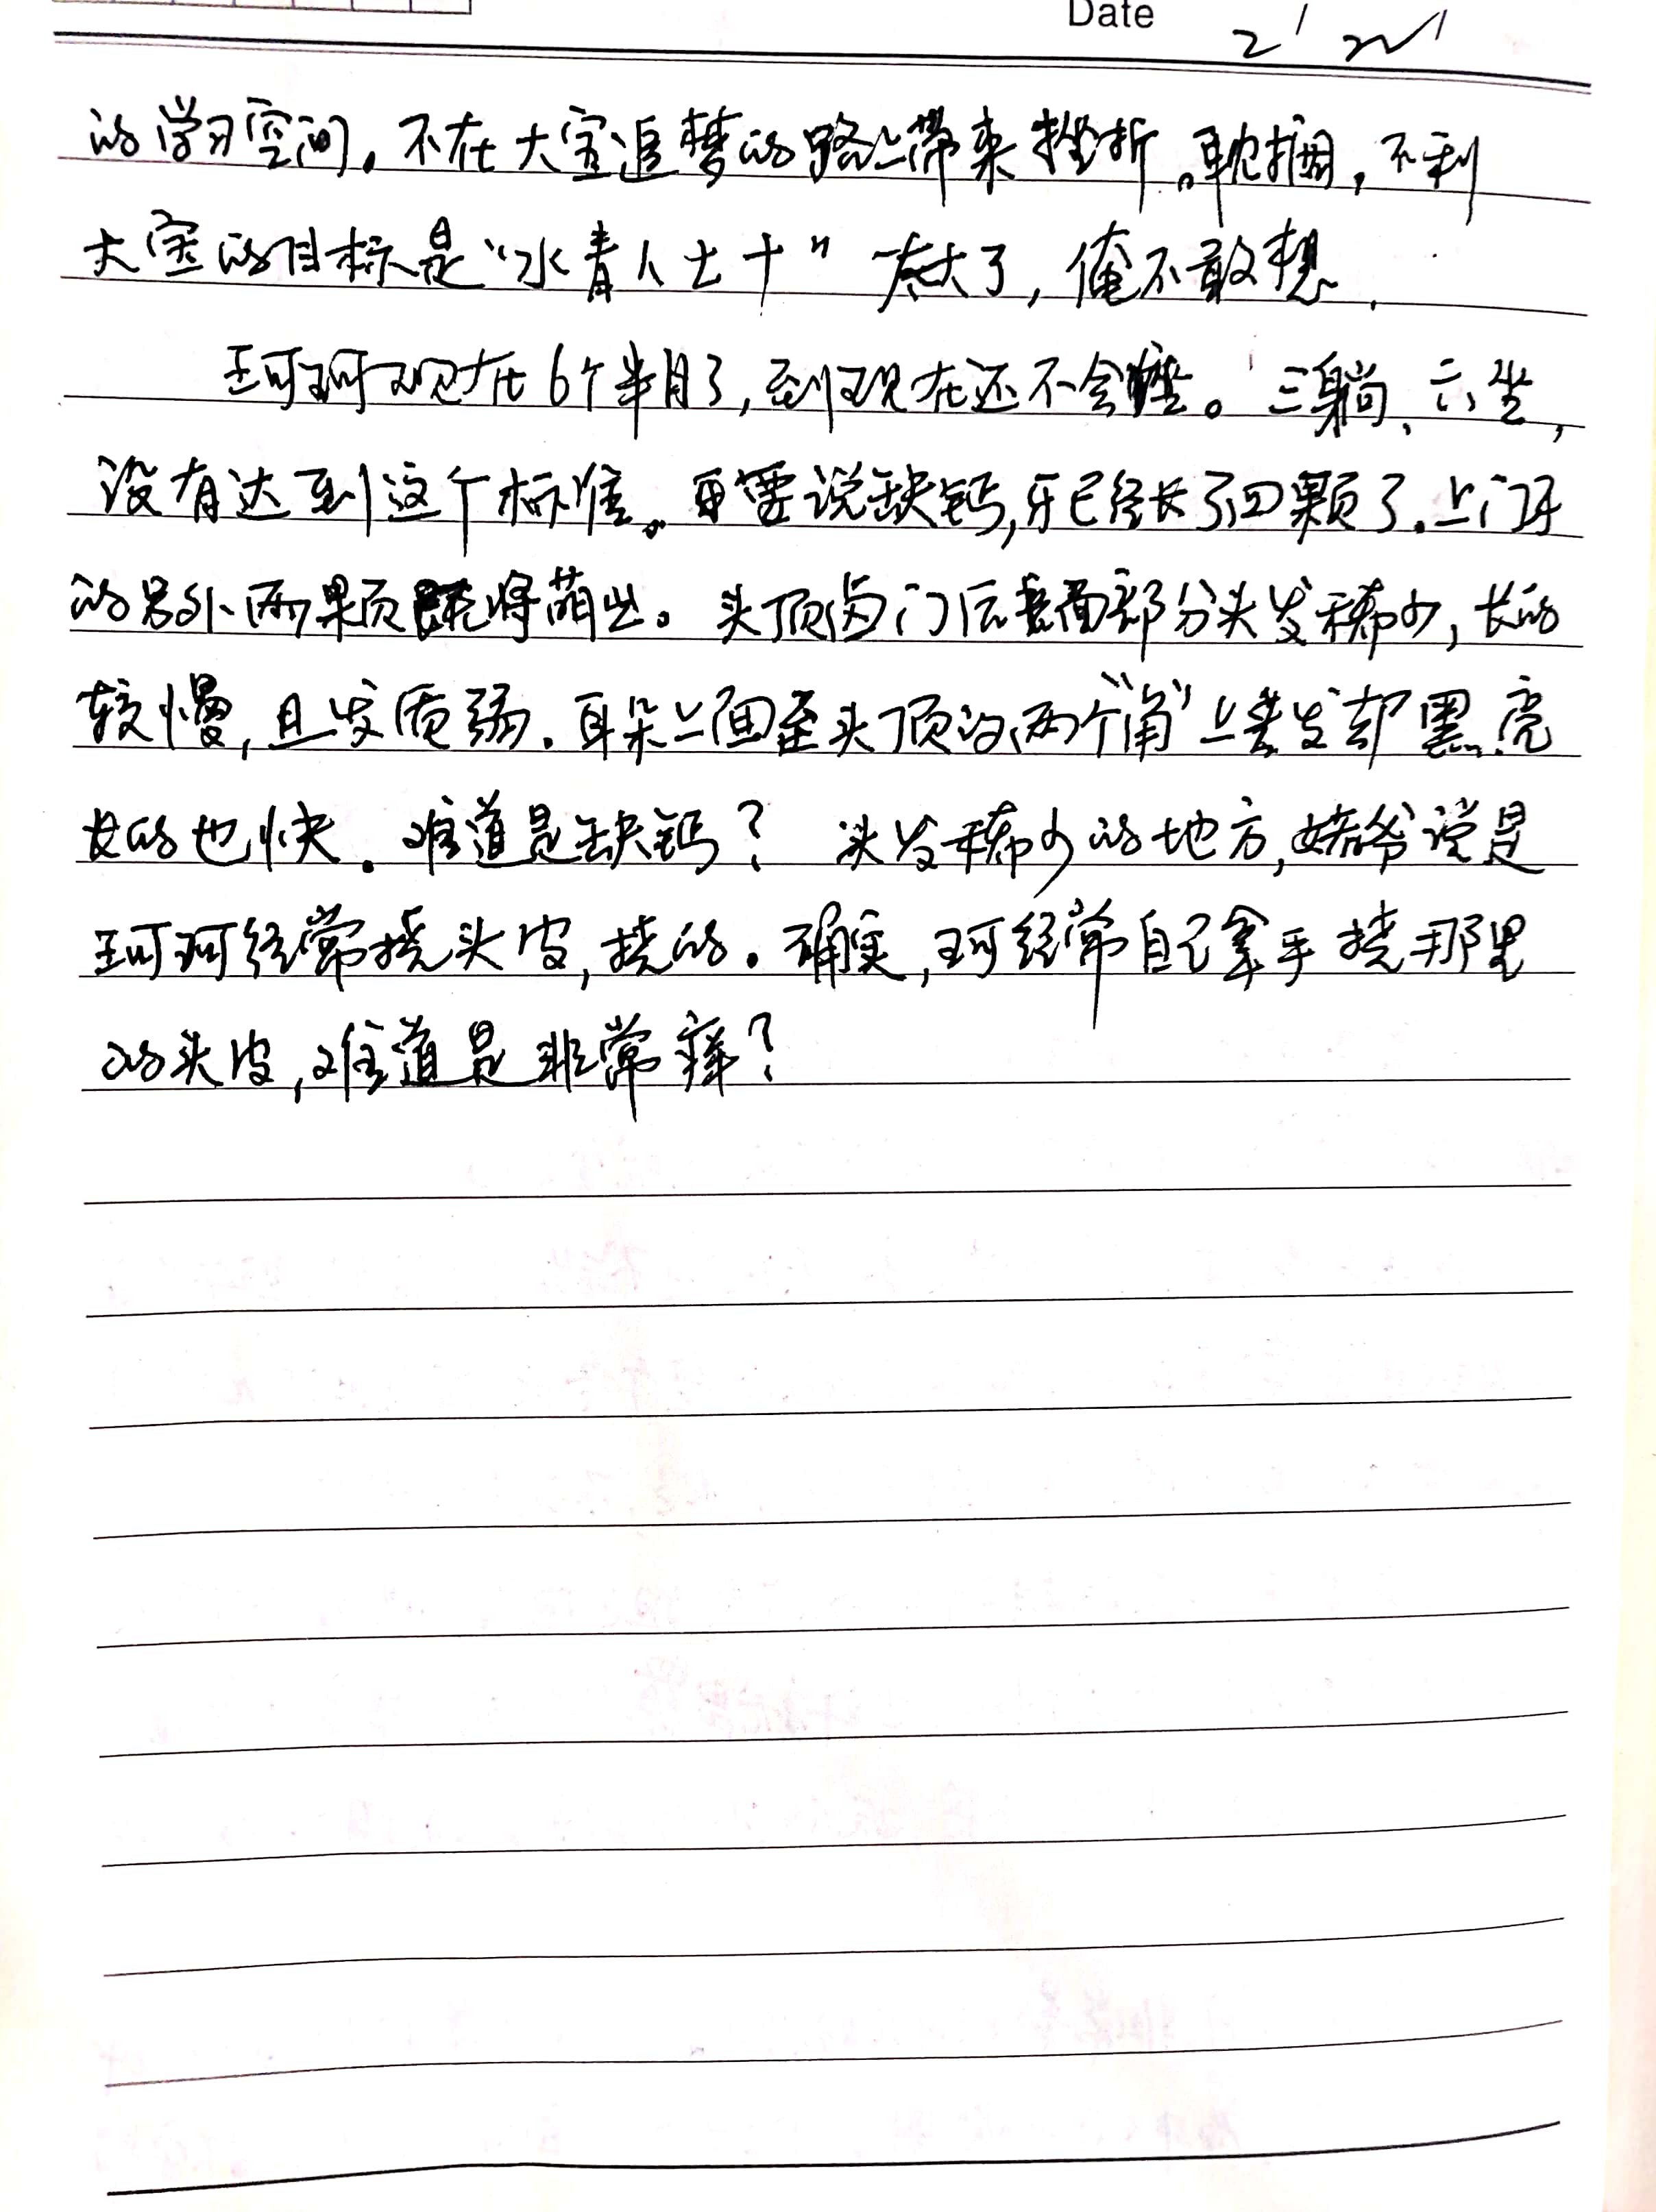 Date 2/21
的学习空间。不在大宝追梦的路上带来挫折。耽搁,不利
大宝的目标是“水青人士十”太大了,俺不敢想.
珂珂现在6个半月了,到现在还不会坐。三躺、六坐,
没有达到这个标准。要说缺钙,牙已经长了四颗了.上门牙
的另外两颗既将萌出。头顶囟门后面部分头发稀少,长的
较慢,且发质弱.耳朵上面至头顶的两个“角”上头发却黑亮
长的也快.难道是缺钙?头发稀少的地方,姥爷说是
珂珂经常挠头皮,挠的.确实,珂经常自己拿手挠那里
的头皮,难道是非常痒?